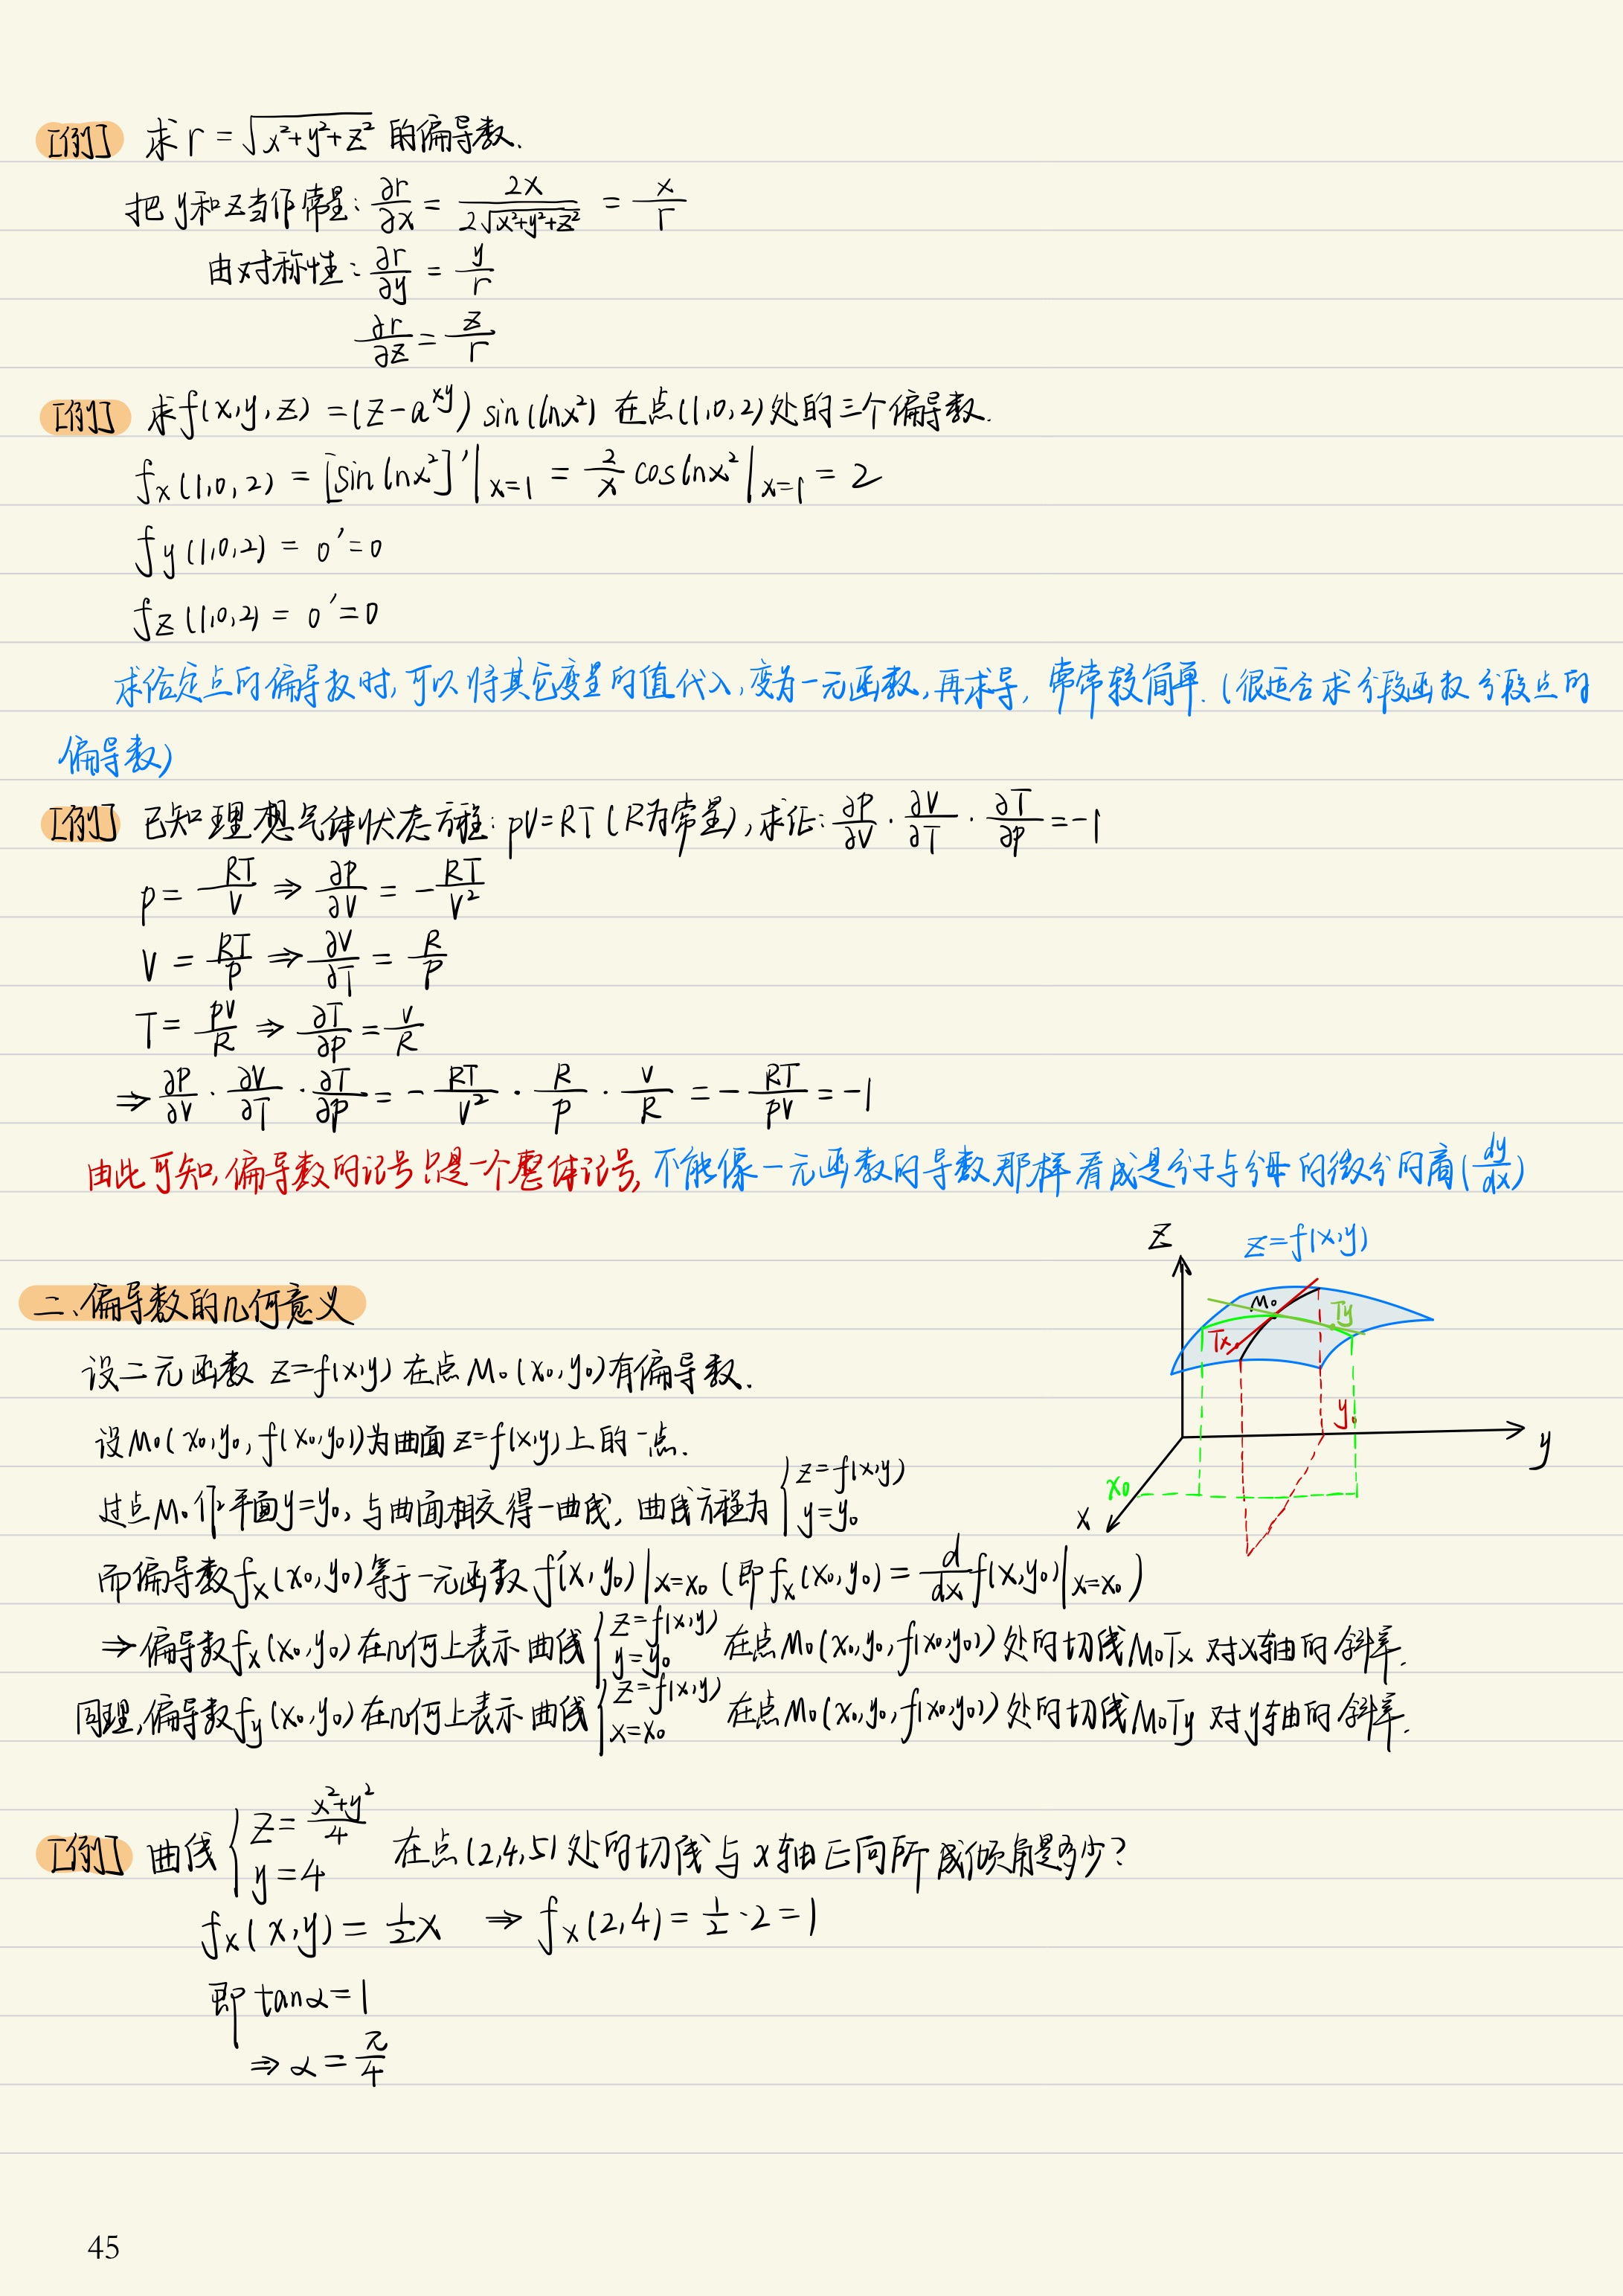 [例] 求 r = √(x²+y²+z²) 的偏导数.
把 y和z当作常量: ∂r/∂x = 2x/(2√(x²+y²+z²)) = x/r
由对称性: ∂r/∂y = y/r
∂r/∂z = z/r
[例] 求f(x,y,z) = (z-a^(xy)) sin(lnx²) 在点(1,0,2)处的三个偏导数.
fx(1,0,2) = [sin lnx²]'|x=1 = 2/x coslnx²|x=1 = 2
fy(1,0,2) = 0' = 0
fz(1,0,2) = 0' = 0
求给定点的偏导数时, 可以将其它变量的值代入, 变为一元函数, 再求导, 常常较简单. (很适合求分段函数分段点的
偏导数)
[例] 已知理想气体状态方程: pV=RT (R为常量), 求证: ∂p/∂V · ∂V/∂T · ∂T/∂p = -1
p = RT/V ⇒ ∂p/∂V = -RT/V²
V = RT/p ⇒ ∂V/∂T = R/p
T = pV/R ⇒ ∂T/∂p = V/R
⇒ ∂p/∂V · ∂V/∂T · ∂T/∂p = -RT/V² · R/p · V/R = -RT/pV = -1
由此可知, 偏导数的记号只是一个整体记号, 不能像一元函数的导数那样看成是分子与分母的微分的商(dy/dx)
二、偏导数的几何意义
设二元函数 z=f(x,y) 在点 M₀(x₀,y₀)有偏导数.
设M₀(x₀,y₀,f(x₀,y₀))为曲面 z=f(x,y) 上的一点.
过点M₀作平面y=y₀, 与曲面相交得一曲线, 曲线方程为 { z=f(x,y) y=y₀
而偏导数fx(x₀,y₀)等于一元函数 f'(x,y₀)|x=x₀ (即 fx(x₀,y₀) = d/dx f(x,y₀)|x=x₀)
⇒ 偏导数fx(x₀,y₀)在几何上表示曲线 { z=f(x,y) y=y₀ 在点M₀(x₀,y₀,f(x₀,y₀))处的切线M₀Tx 对x轴的斜率.
同理, 偏导数fy(x₀,y₀)在几何上表示曲线 { z=f(x,y) x=x₀ 在点M₀(x₀,y₀,f(x₀,y₀))处的切线M₀Ty 对y轴的斜率.
z
z=f(x,y)
M₀
Ty
Tx
y₀
y
x₀
x
[例] 曲线 { z=(x²+y²)/4 y=4 在点(2,4,5)处的切线与x轴正向所成倾角是多少?
fx(x,y) = ½x ⇒ fx(2,4) = ½·2 = 1
即 tanα=1
⇒ α = π/4
45